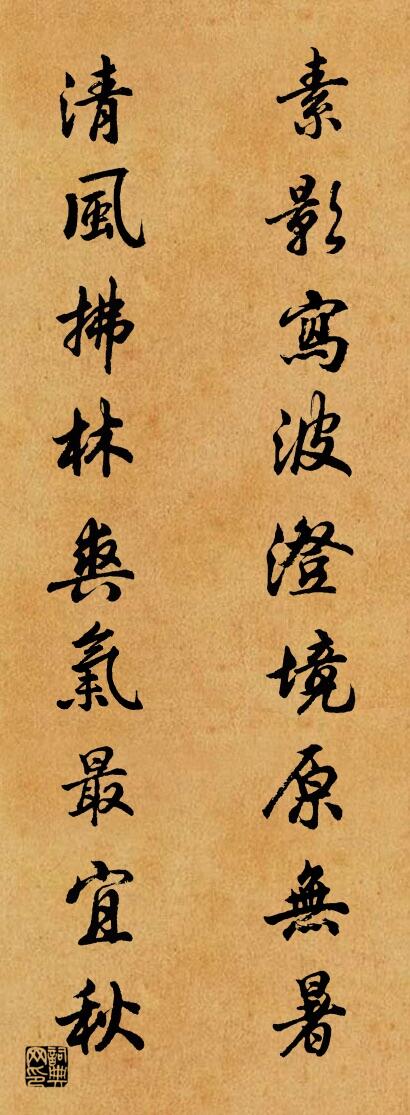 素影寫波澄境原無暑
清風拂林爽氣最宜秋
詞典
网印